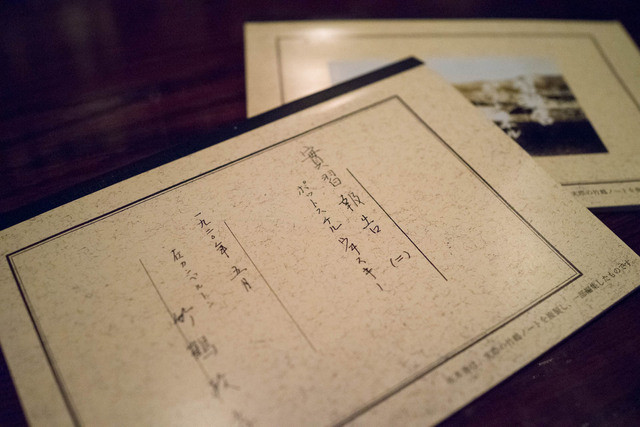 實習報告 (二)
ポットスチル ウヰスキー
一九二〇年 五月
竹鶴政孝
本書冊は、実際の竹鶴ノートを複製し、一部編集したものです。
実際の竹鶴ノートを